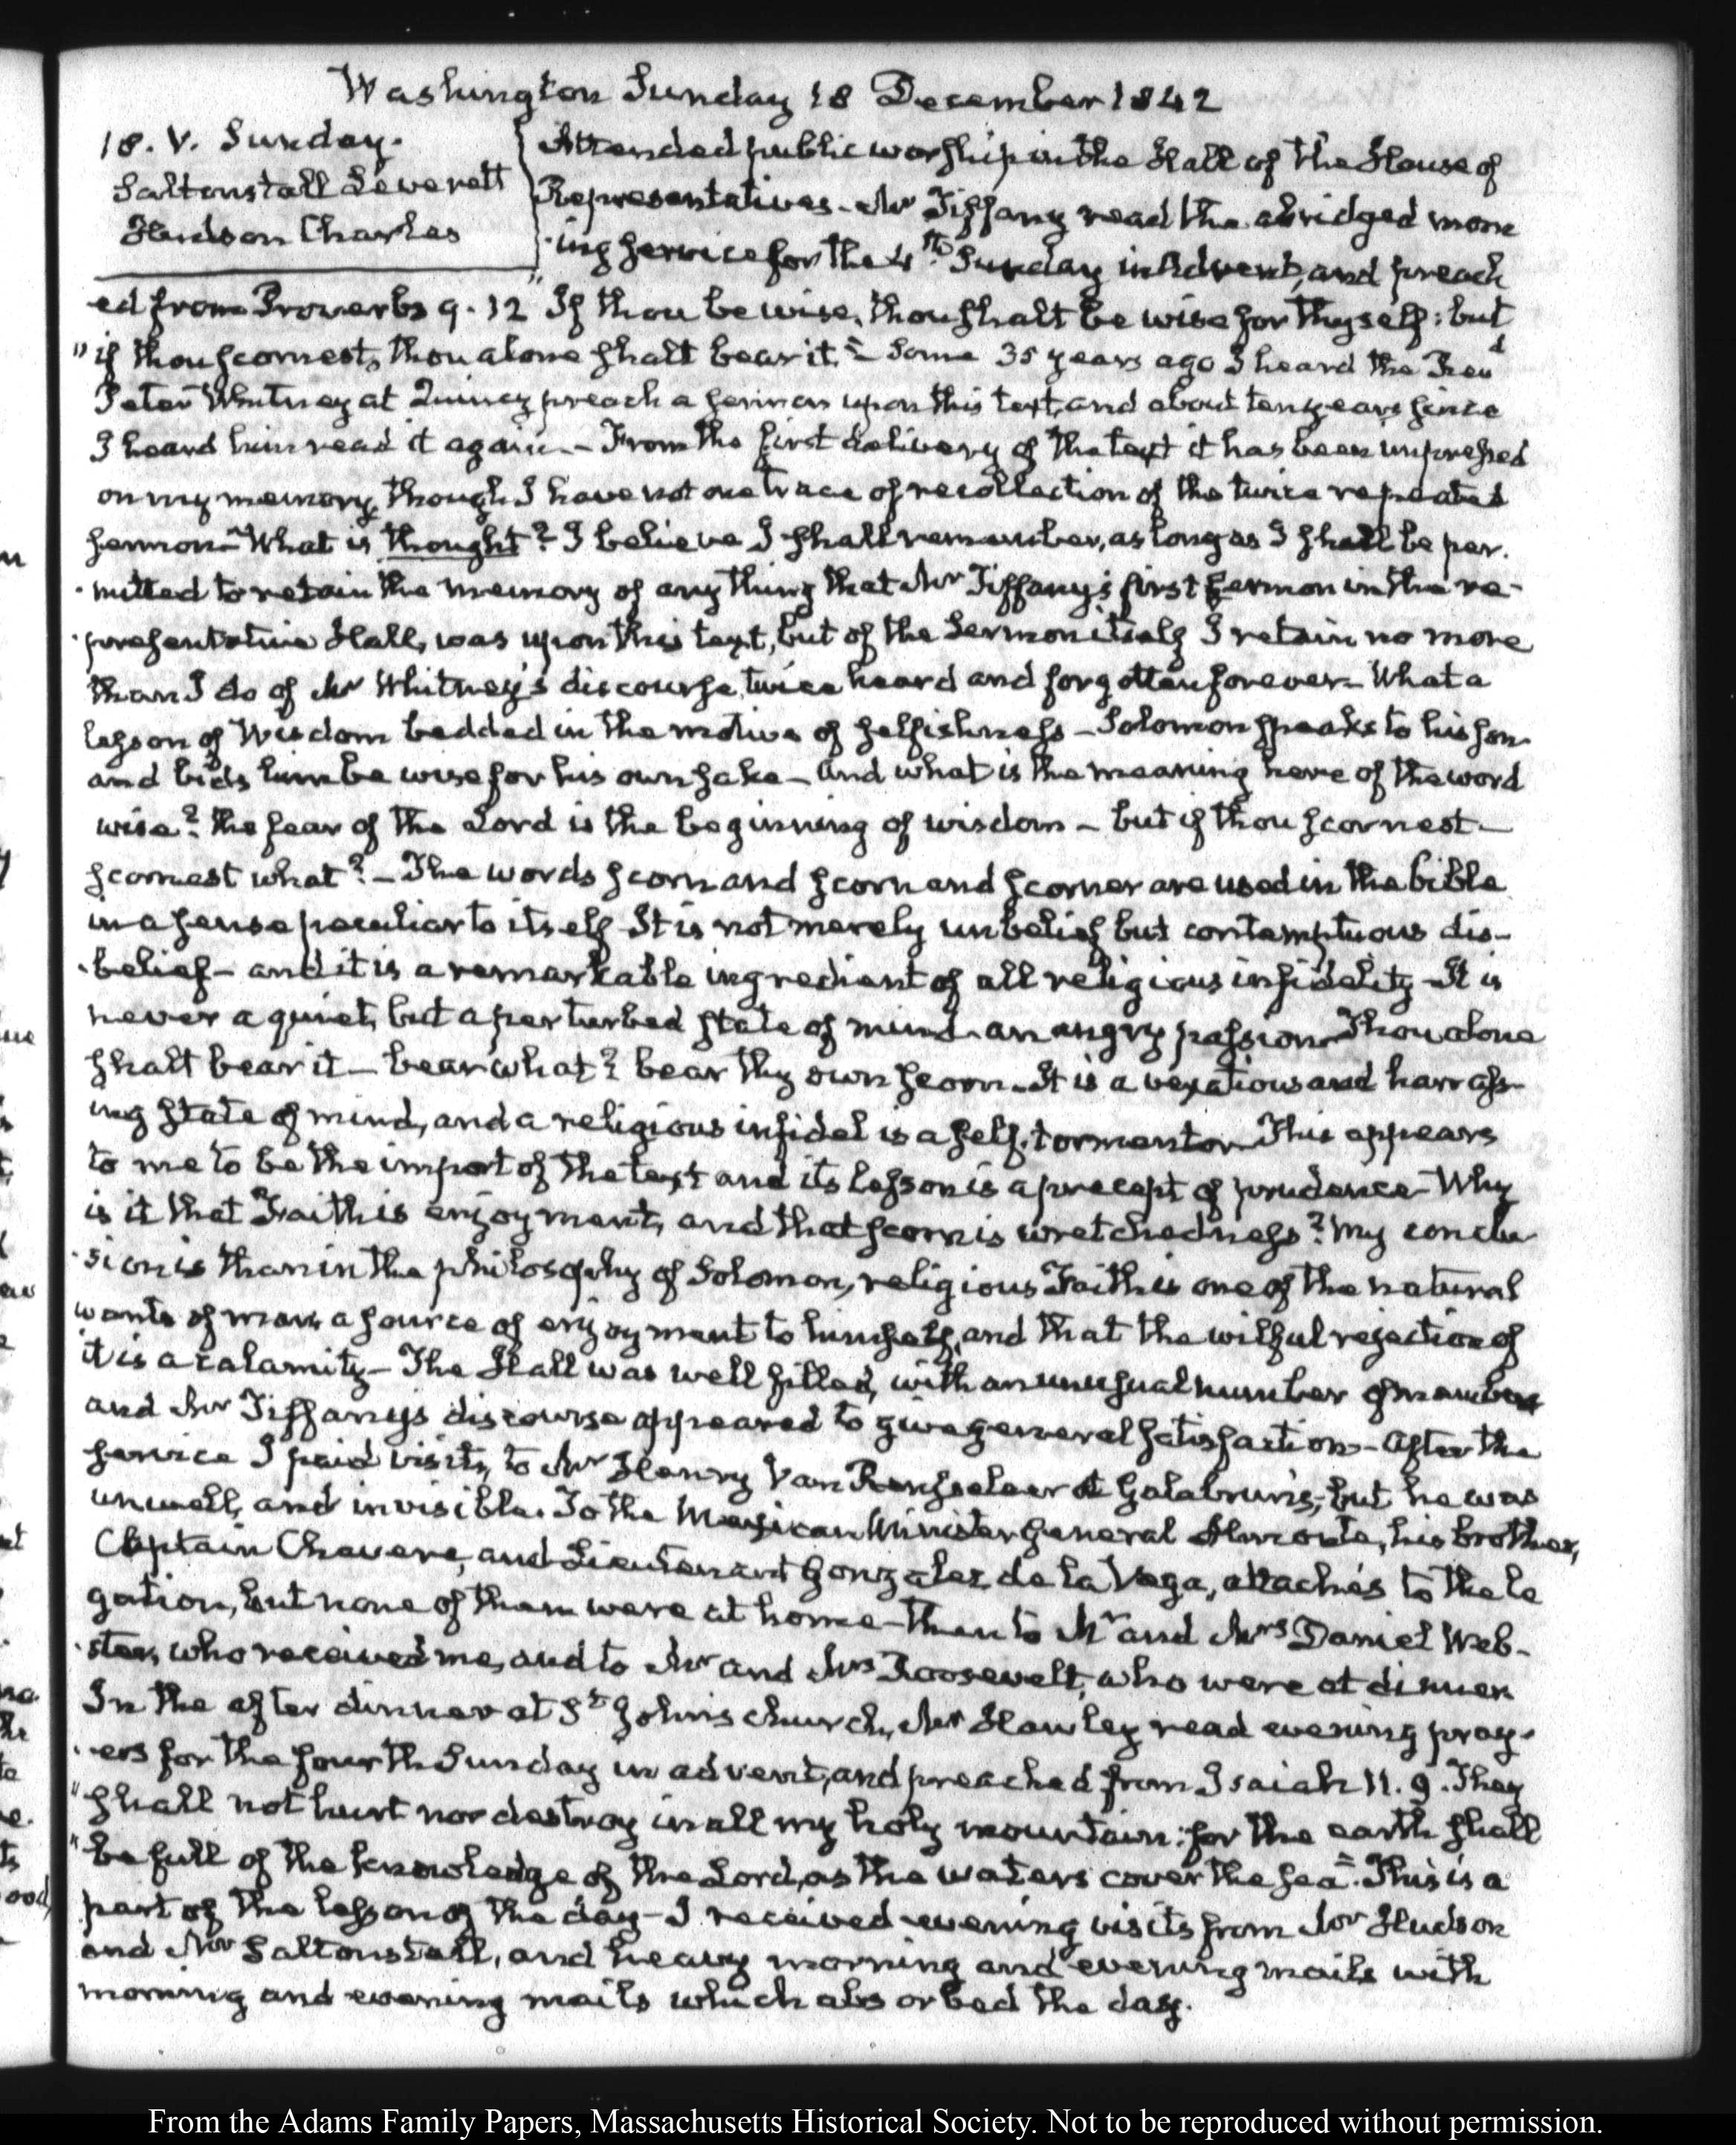 Washington Sunday 18 December 1842
18. V. Sunday.
Saltonstall Leverett
Hudson Charles
Attended public worship in the Hall of the House of
Representatives - Mr Tiffany read the abridged morn
-ing service for the 4th Sunday in Advent, and preach
ed from Proverbs 9. 12 "If thou be wise, thou shalt be wise for thyself: but
"if thou scornest, thou alone shalt bear it." - Some 35 years ago I heard the Revd
Peter Whitney at Quincy preach a sermon upon this text, and about ten years since
I heard him read it again. - From the first delivery of the text it has been impressed
on my memory, though I have not one trace of recollection of the twice repeated
sermon - What is thought? I believe I shall remember, as long as I shall be per-
-mitted to retain the memory of any thing that Mr Tiffany's first sermon in the re-
-presentative Hall, was upon this text, but of the Sermon itself I retain no more
than I do of Mr Whitney's discourse, twice heard and forgotten forever - What a
lesson of Wisdom bedded in the motive of selfishness - Solomon speaks to his son
and bids him be wise for his own sake - and what is the meaning here of the word
wise? the fear of the Lord is the beginning of wisdom - but if thou scornest -
scornest what? - The words scorn and scorn and scorner are used in the bible
in a sense peculiar to itself It is not merely unbelief but contemptuous dis-
-belief - and it is a remarkable ingredient of all religious infidelity - It is
never a quiet, but a perturbed state of mind - an angry passion - Thou alone
shalt bear it - bear what? bear thy own scorn - It is a vexatious and harrass-
ing state of mind, and a religious infidel is a self-tormentor - This appears
to me to be the import of the text and its lesson is a precept of prudence - Why
is it that Faith is enjoyment, and that scorn is wretchedness? My conclu
-sion is than in the philosophy of Solomon, religious Faith is one of the natural
wants of man, a source of enjoyment to himself, and that the wilful rejection of
it is a calamity - The Hall was well filled, with an unusual number of members
and Mr Tiffany's discourse appeared to give general satisfaction - After the
service I paid visits, to Mr Henry Van Rensselaer at Galabrun's, but he was
unwell, and invisible. To the Mexican Minister General Almonte, his brother,
Captain Chavere, and Lieutenant Gonzalez de la Vega, attachés to the le
gation, but none of them were at home - then to Mr and Mrs Daniel Web-
-ster, who received me, and to Mr and Mrs Roosevelt, who were at dinner
In the after dinner at St John's church, Mr Hawley read evening pray-
-ers for the fourth Sunday in advent, and preached from Isaiah 11. 9. They
"shall not hurt nor destroy in all my holy mountain: for the earth shall
"be full of the knowledge of the Lord, as the waters cover the sea". This is a
part of the lesson of the day - I received evening visits from Mr Hudson
and Mr Saltonstall, and heavy morning and evening mails with
morning and evening mails which absorbed the day.
From the Adams Family Papers, Massachusetts Historical Society. Not to be reproduced without permission.